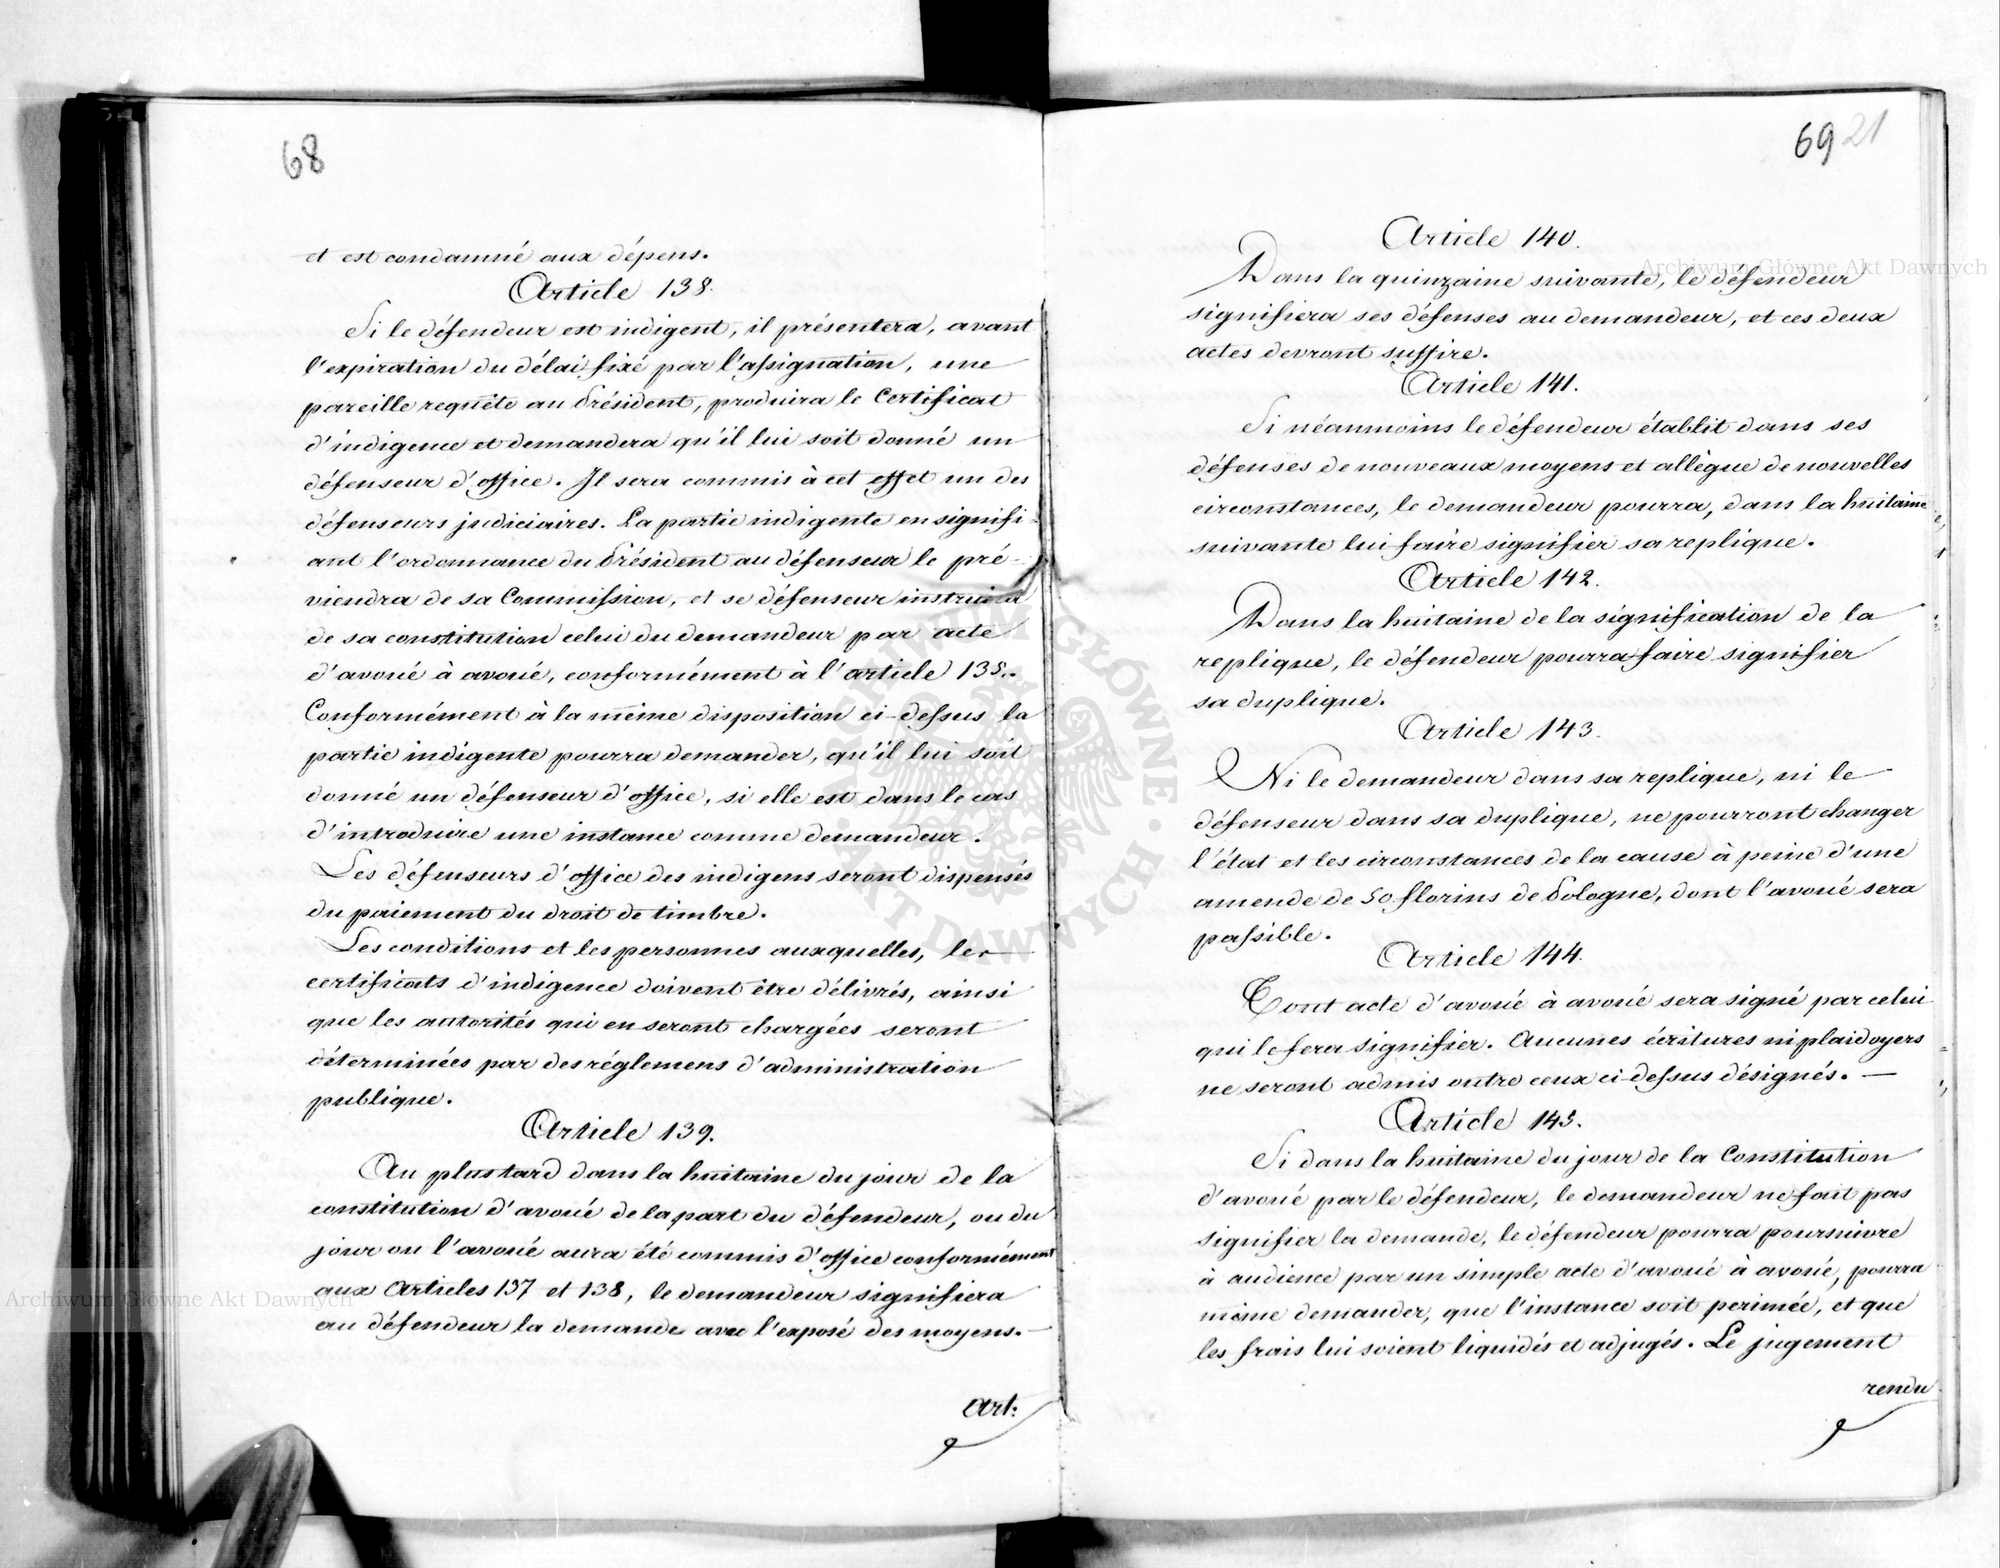 68
et est condamné aux dépens.
Article 138.
Si le défendeur est indigent, il présentera, avant
l'expiration du délai fixé par l'assignation, une
pareille requête au Président, produira le Certificat
d'indigence et demandera qu'il lui soit donné un
défenseur d'office. Il sera commis à cet effet un des
défenseurs judiciaires. La partie indigente en signifi-
ant l'ordonnance du Président au défenseur le pré-
viendra de sa Commission, et se défenseur instruira
de sa constitution celui du demandeur par acte
d'avoué à avoué, conformément à l'article 135.
Conformément à la même disposition ci-dessus la
partie indigente pourra demander, qu'il lui soit
donné un défenseur d'office, si elle est dans le cas
d'introduire une instance comme demandeur.
Les défenseurs d'office des indigens seront dispensés
du paiement du droit de timbre.
Les conditions et les personnes auxquelles, les
certificats d'indigence doivent être délivrés, ainsi
que les autorités qui en seront chargées seront
déterminées par des réglemens d'administration
publique.
Article 139.
Au plus tard dans la huitaine du jour de la
constitution d'avoué de la part du défendeur, ou du
jour ou l'avoué aura été commis d'office conformément
aux Articles 137 et 138, le demandeur signifiera
au défendeur la demande avec l'exposé des moyens.
Art:
69 21
Article 140.
Dans la quinzaine suivante, le défendeur
signifiera ses défenses au demandeur, et ces deux
actes devront suffire.
Article 141.
Si néanmoins le défendeur établit dans ses
défenses de nouveaux moyens et allègue de nouvelles
circonstances, le demandeur pourra, dans la huitaine
suivante lui faire signifier sa replique.
Article 142.
Dans la huitaine de la signification de la
replique, le défendeur pourra faire signifier
sa duplique.
Article 143.
Ni le demandeur dans sa replique, ni le
défenseur dans sa duplique, ne pourront changer
l'état et les circonstances de la cause à peine d'une
amende de 50 florins de Pologne, dont l'avoué sera
passible.
Article 144.
Tout acte d'avoué à avoué sera signé par celui
qui le fera signifier. Aucunes écritures ni plaidoyers
ne seront admis outre ceux ci-dessus désignés. —
Article 145.
Si dans la huitaine du jour de la Constitution
d'avoué par le défendeur, le demandeur ne fait pas
signifier la demande, le défendeur pourra poursuivre
à audience par un simple acte d'avoué à avoué, pourra
même demander, que l'instance soit perimée, et que
les frais lui soient liquidés et adjugés. Le jugement
rendu
Archiwum Główne Akt Dawnych
Archiwum Główne Akt Dawnych
ARCHIWUM GŁÓWNE · AKT DAWNYCH ·